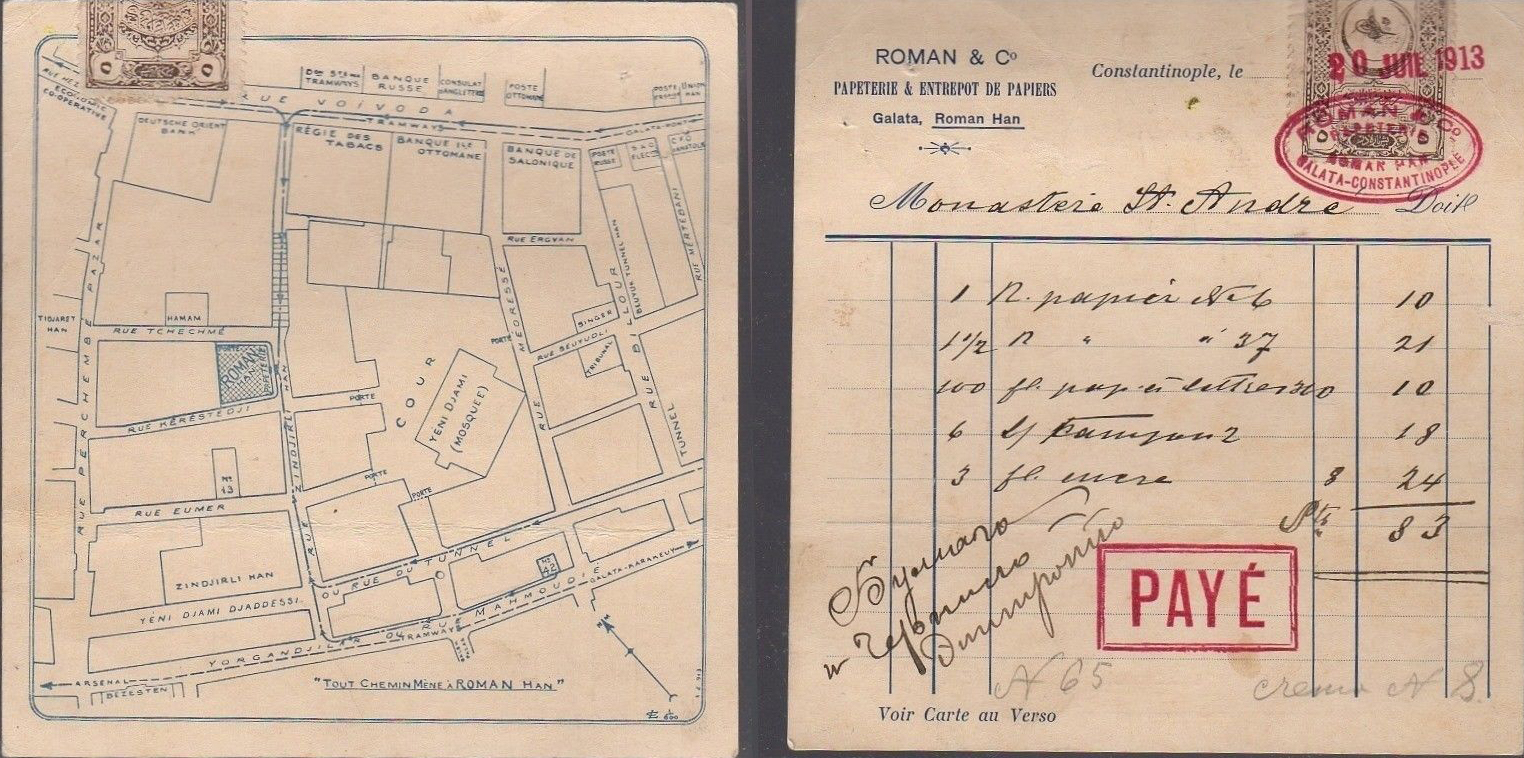 RUE HEZ
ECONOMIC
CO-OPERATIVE
TRAMWAYS
BANQUE
RUSSE
CONSULAT
D'ANGLETERRE
POSTE
OTTOMANE
POSTE
UNION
HAN
RUE VOIVODA
TRAMWAYS
GALATA-PONT
DEUTSCHE ORIENT
BANK
RÉGIE DES
TABACS
BANQUE Ile
OTTOMANE
BANQUE DE
SALONIQUE
POSTE
RUSSE
RUE ERGVAN
RUE MERTEBANI
BEUYUK TUNNEL HAN
RUE PERCHEMBÉ PAZAR
TIDJARET
HAN
HAMAM
RUE TCHECHMÉ
PORTE
ROMAN
HAN
PAPETERIE
RUE KÉRESTEDJI
RUE ZINDJIRLI HAN
PORTE
RUE MEDRESSÉ
SINGER
RUE BEUYUDLI
TRIBUNAL
RUE BILLOUR
TUNNEL
COUR
YENI DJAMI
(MOSQUEE)
PORTE
PORTE
PORTE
No
13
RUE EUMER
ZINDJIRLI HAN
YÉNI DJAMI DJADDESSI
OU RUE DU TUNNEL
No
42
YORGANDJILER OU RUE MAHMOUDIE
TRAMWAYS
GALATA-KARAKEUY
ARSENAL
BEZESTEN
"TOUT CHEMIN MÈNE À ROMAN HAN"
ROMAN & Co
PAPETERIE & ENTREPOT DE PAPIERS
Galata, Roman Han
Constantinople, le
20 JUIL 1913
ROMAN & Co
PAPETERIE
ROMAN HAN
GALATA-CONSTANTINOPLE
Monastère St. André Doit
1 R. papier No 6 10
1 1/2 R " " 37 21
100 fl. papier 10
6 18
3 fl. encre 8 24
83
Бумага
и чернила
PAYÉ
N 65
N 8.
Voir Carte au Verso